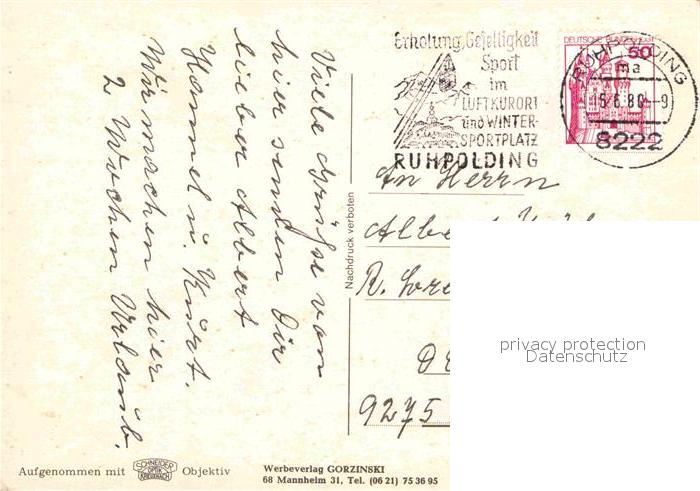 Viele Grüße von
hier senden Dir
lieber Albert
Hannel u. Kurt.
Wir machen hier
2 Wochen Urlaub.
Erholung, Geselligkeit
Sport
im
LUFTKURORT
und WINTER-
SPORTPLATZ
RUHPOLDING
DEUTSCHE BUNDESPOST
50
RUHPOLDING
ma
15.6.80-9
8222
Nachdruck verboten
An Herrn
R.
9275
privacy protection
Datenschutz
Aufgenommen mit SCHNEIDER OPTIK KREUZNACH Objektiv
Werbeverlag GORZINSKI
68 Mannheim 31, Tel. (06 21) 75 36 95